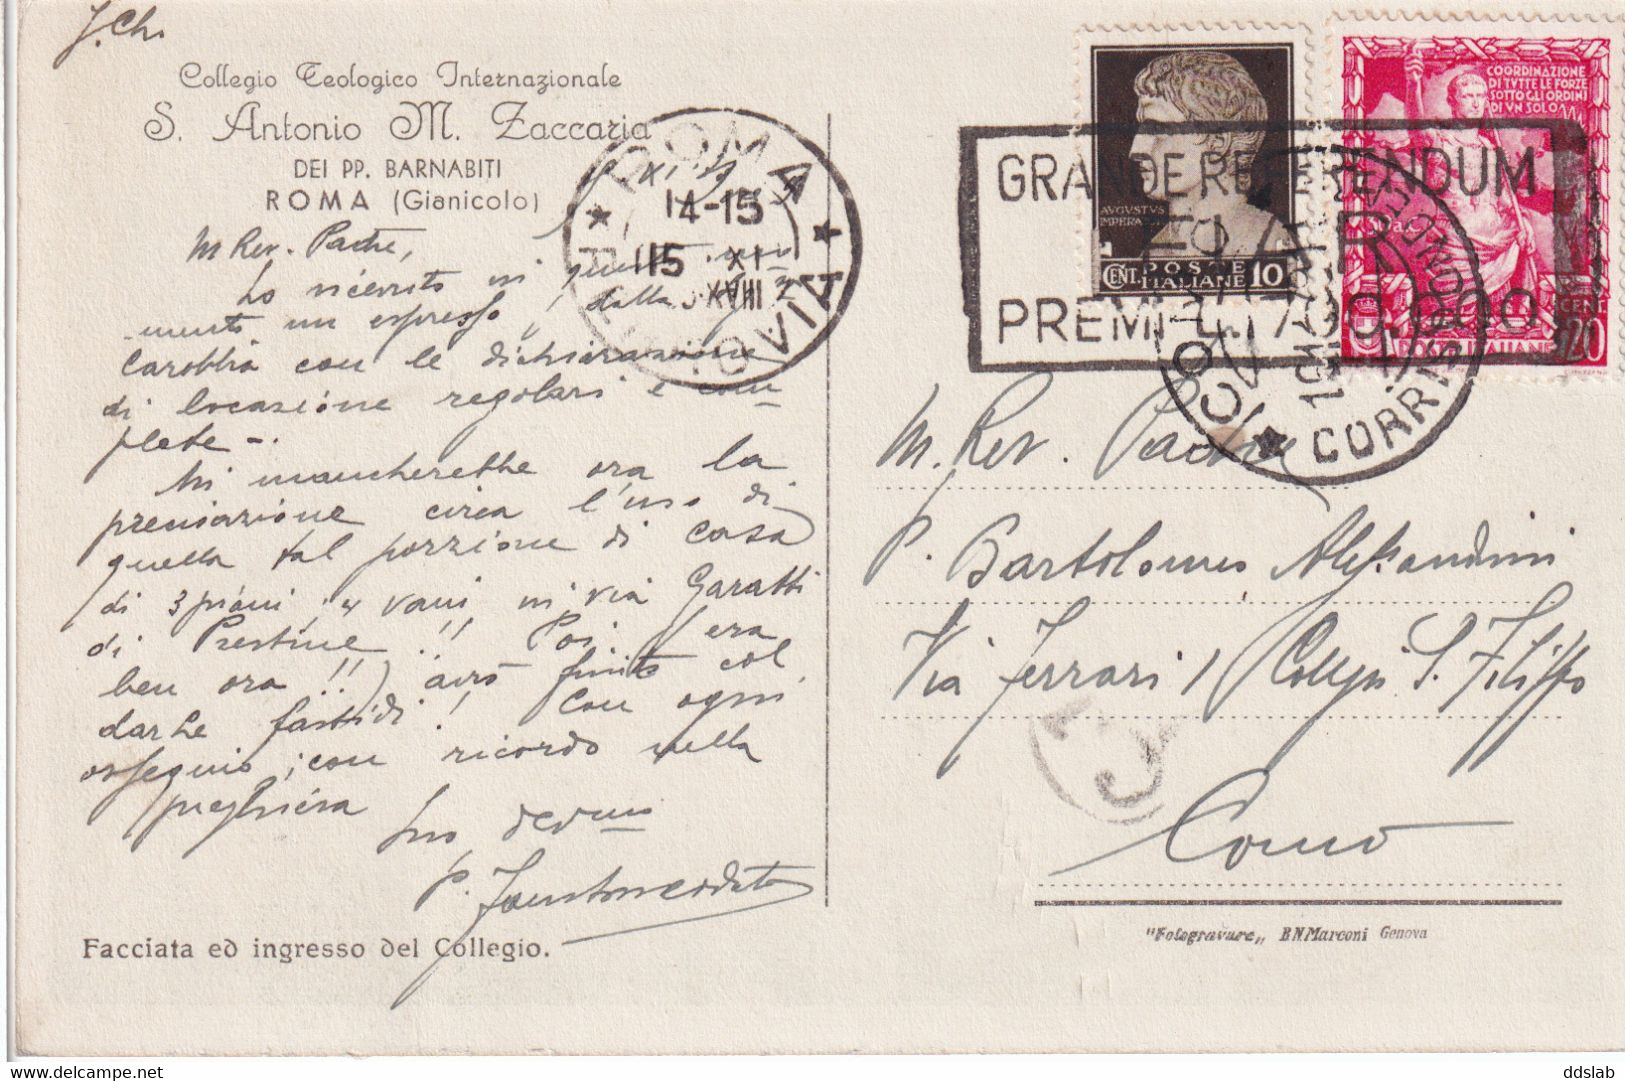 J. Ch.
Collegio Teologico Internazionale
S. Antonio M. Zaccaria
DEI PP. BARNABITI
ROMA (Gianicolo)
M. Rev. Padre,
Ho ricevuto in questo
mento un espresso dalla
Carobbia con le dichiarazione
di locazione regolari e com
plete -.
Mi mancherebbe ora la
precisazione circa l'uso di
quella tal porzione di casa
di 3 piani, 4 vani in via Garatti
di Prestine!! Poi (era
ben ora!!) avrò finito col
darLe fastidi! Con ogni
ossequio, con ricordo nella
preghiera
Suo dev.mo
P.
Facciata ed ingresso del Collegio.
ROMA
14-15
15 XI
XVIII
AUGUSTUS
IMPERATOR
CENT. POSTE ITALIANE 10
COORDINAZIONE
DI TVTTE LE FORZE
SOTTO GLI ORDINI
DI VN SOLO
CENT 20
POSTE ITALIANE
GRANDE REFERENDUM
PREMI L.
COMO
CORRISP
M. Rev. Padre
P. Bartolomeo Alessandrini
Via Ferrari 1 Collegio S. Filippo
Como
"Fotogravure„ B.N.Marconi Genova
ddslab
delcampe.net